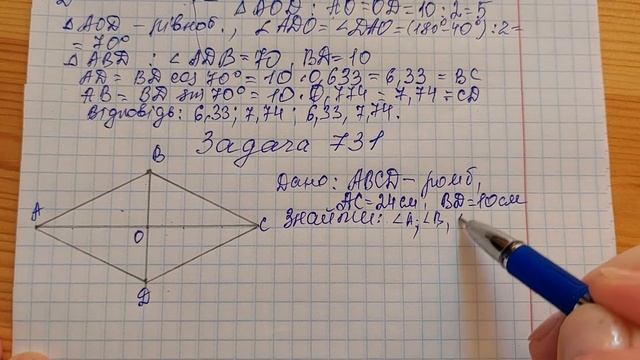 △AOD: AO=OD=10:2=5
△AOD - рівноб., ∠ADO=∠DAO=(180°-40°):2=
=70°
△ABD: ∠ADB=70, BD=10
AD=BD cos 70°=10·0,633=6,33=BC
AB=BD sin 70°=10·0,774=7,74=CD
Відповідь: 6,33; 7,74; 6,33, 7,74.
Задача 731
B
A
O
C
D
Дано: ABCD-ромб,
AC=24см, BD=10см
Знайти: ∠A, ∠B,